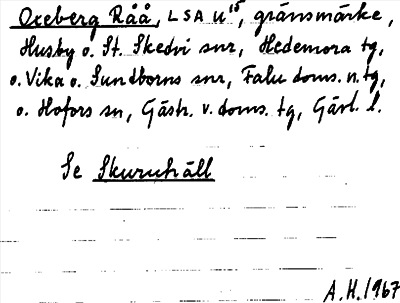 Oxeberg Råå, LSA U15, gränsmärke,
Husby o. St. Skedvi snr, Hedemora tg,
o. Vika o. Sundborns snr, Falu doms. n. tg,
o. Hofors sn, Gästr. v. doms. tg, Gävl. l.
Se Skuruhäll
A.H. 1967